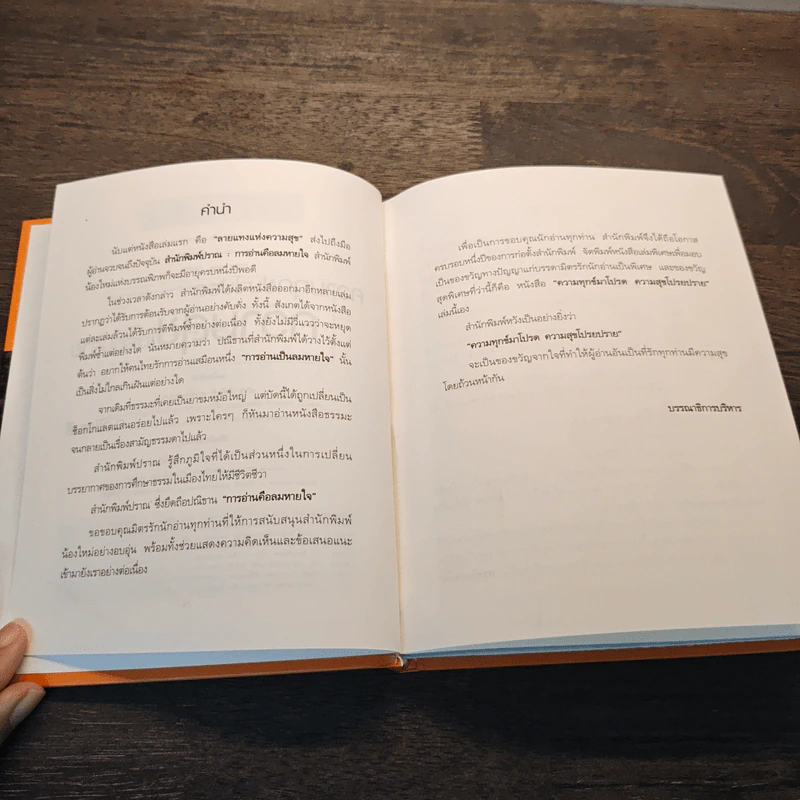 คำนำ
นับแต่หนังสือเล่มแรก คือ "ลายแทงแห่งความสุข" ส่งไปถึงมือ
ผู้อ่านจวบจนถึงปัจจุบัน สำนักพิมพ์ปราณ : การอ่านคือลมหายใจ สำนักพิมพ์
น้องใหม่แห่งบรรณพิภพก็จะมีอายุครบหนึ่งปีพอดี
ในช่วงเวลาดังกล่าว สำนักพิมพ์ได้ผลิตหนังสือออกมาอีกหลายเล่ม
ปรากฏว่าได้รับการต้อนรับจากผู้อ่านอย่างคับคั่ง ทั้งนี้ สังเกตได้จากหนังสือ
แต่ละเล่มล้วนได้รับการตีพิมพ์ซ้ำอย่างต่อเนื่อง ทั้งยังไม่มีวี่แววว่าจะหยุด
พิมพ์ซ้ำแต่อย่างใด นั่นหมายความว่า ปณิธานที่สำนักพิมพ์ได้วางไว้ตั้งแต่
ต้นว่า อยากให้คนไทยรักการอ่านเสมือนหนึ่ง "การอ่านเป็นลมหายใจ" นั้น
เป็นสิ่งไม่ไกลเกินฝันแต่อย่างใด
จากเดิมที่ธรรมะที่เคยเป็นยาขมหม้อใหญ่ แต่บัดนี้ได้ถูกเปลี่ยนเป็น
ช็อกโกแลตแสนอร่อยไปแล้ว เพราะใครๆ ก็หันมาอ่านหนังสือธรรมะ
จนกลายเป็นเรื่องสามัญธรรมดาไปแล้ว
สำนักพิมพ์ปราณ รู้สึกภูมิใจที่ได้เป็นส่วนหนึ่งในการเปลี่ยน
บรรยากาศของการศึกษาธรรมในเมืองไทยให้มีชีวิตชีวา
สำนักพิมพ์ปราณ ซึ่งยึดถือปณิธาน "การอ่านคือลมหายใจ"
ขอขอบคุณมิตรรักนักอ่านทุกท่านที่ให้การสนับสนุนสำนักพิมพ์
น้องใหม่อย่างอบอุ่น พร้อมทั้งช่วยแสดงความคิดเห็นและข้อเสนอแนะ
เข้ามายังเราอย่างต่อเนื่อง
เพื่อเป็นการขอบคุณนักอ่านทุกท่าน สำนักพิมพ์จึงได้ถือโอกาส
ครบรอบหนึ่งปีของการก่อตั้งสำนักพิมพ์ จัดพิมพ์หนังสือเล่มพิเศษเพื่อมอบ
เป็นของขวัญทางปัญญาแก่บรรดามิตรรักนักอ่านเป็นพิเศษ และของขวัญ
สุดพิเศษที่ว่านี้ก็คือ หนังสือ "ความทุกข์มาโปรด ความสุขโปรยปราย"
เล่มนี้เอง
สำนักพิมพ์หวังเป็นอย่างยิ่งว่า
"ความทุกข์มาโปรด ความสุขโปรยปราย"
จะเป็นของขวัญจากใจที่ทำให้ผู้อ่านอันเป็นที่รักทุกท่านมีความสุข
โดยถ้วนหน้ากัน
บรรณาธิการบริหาร